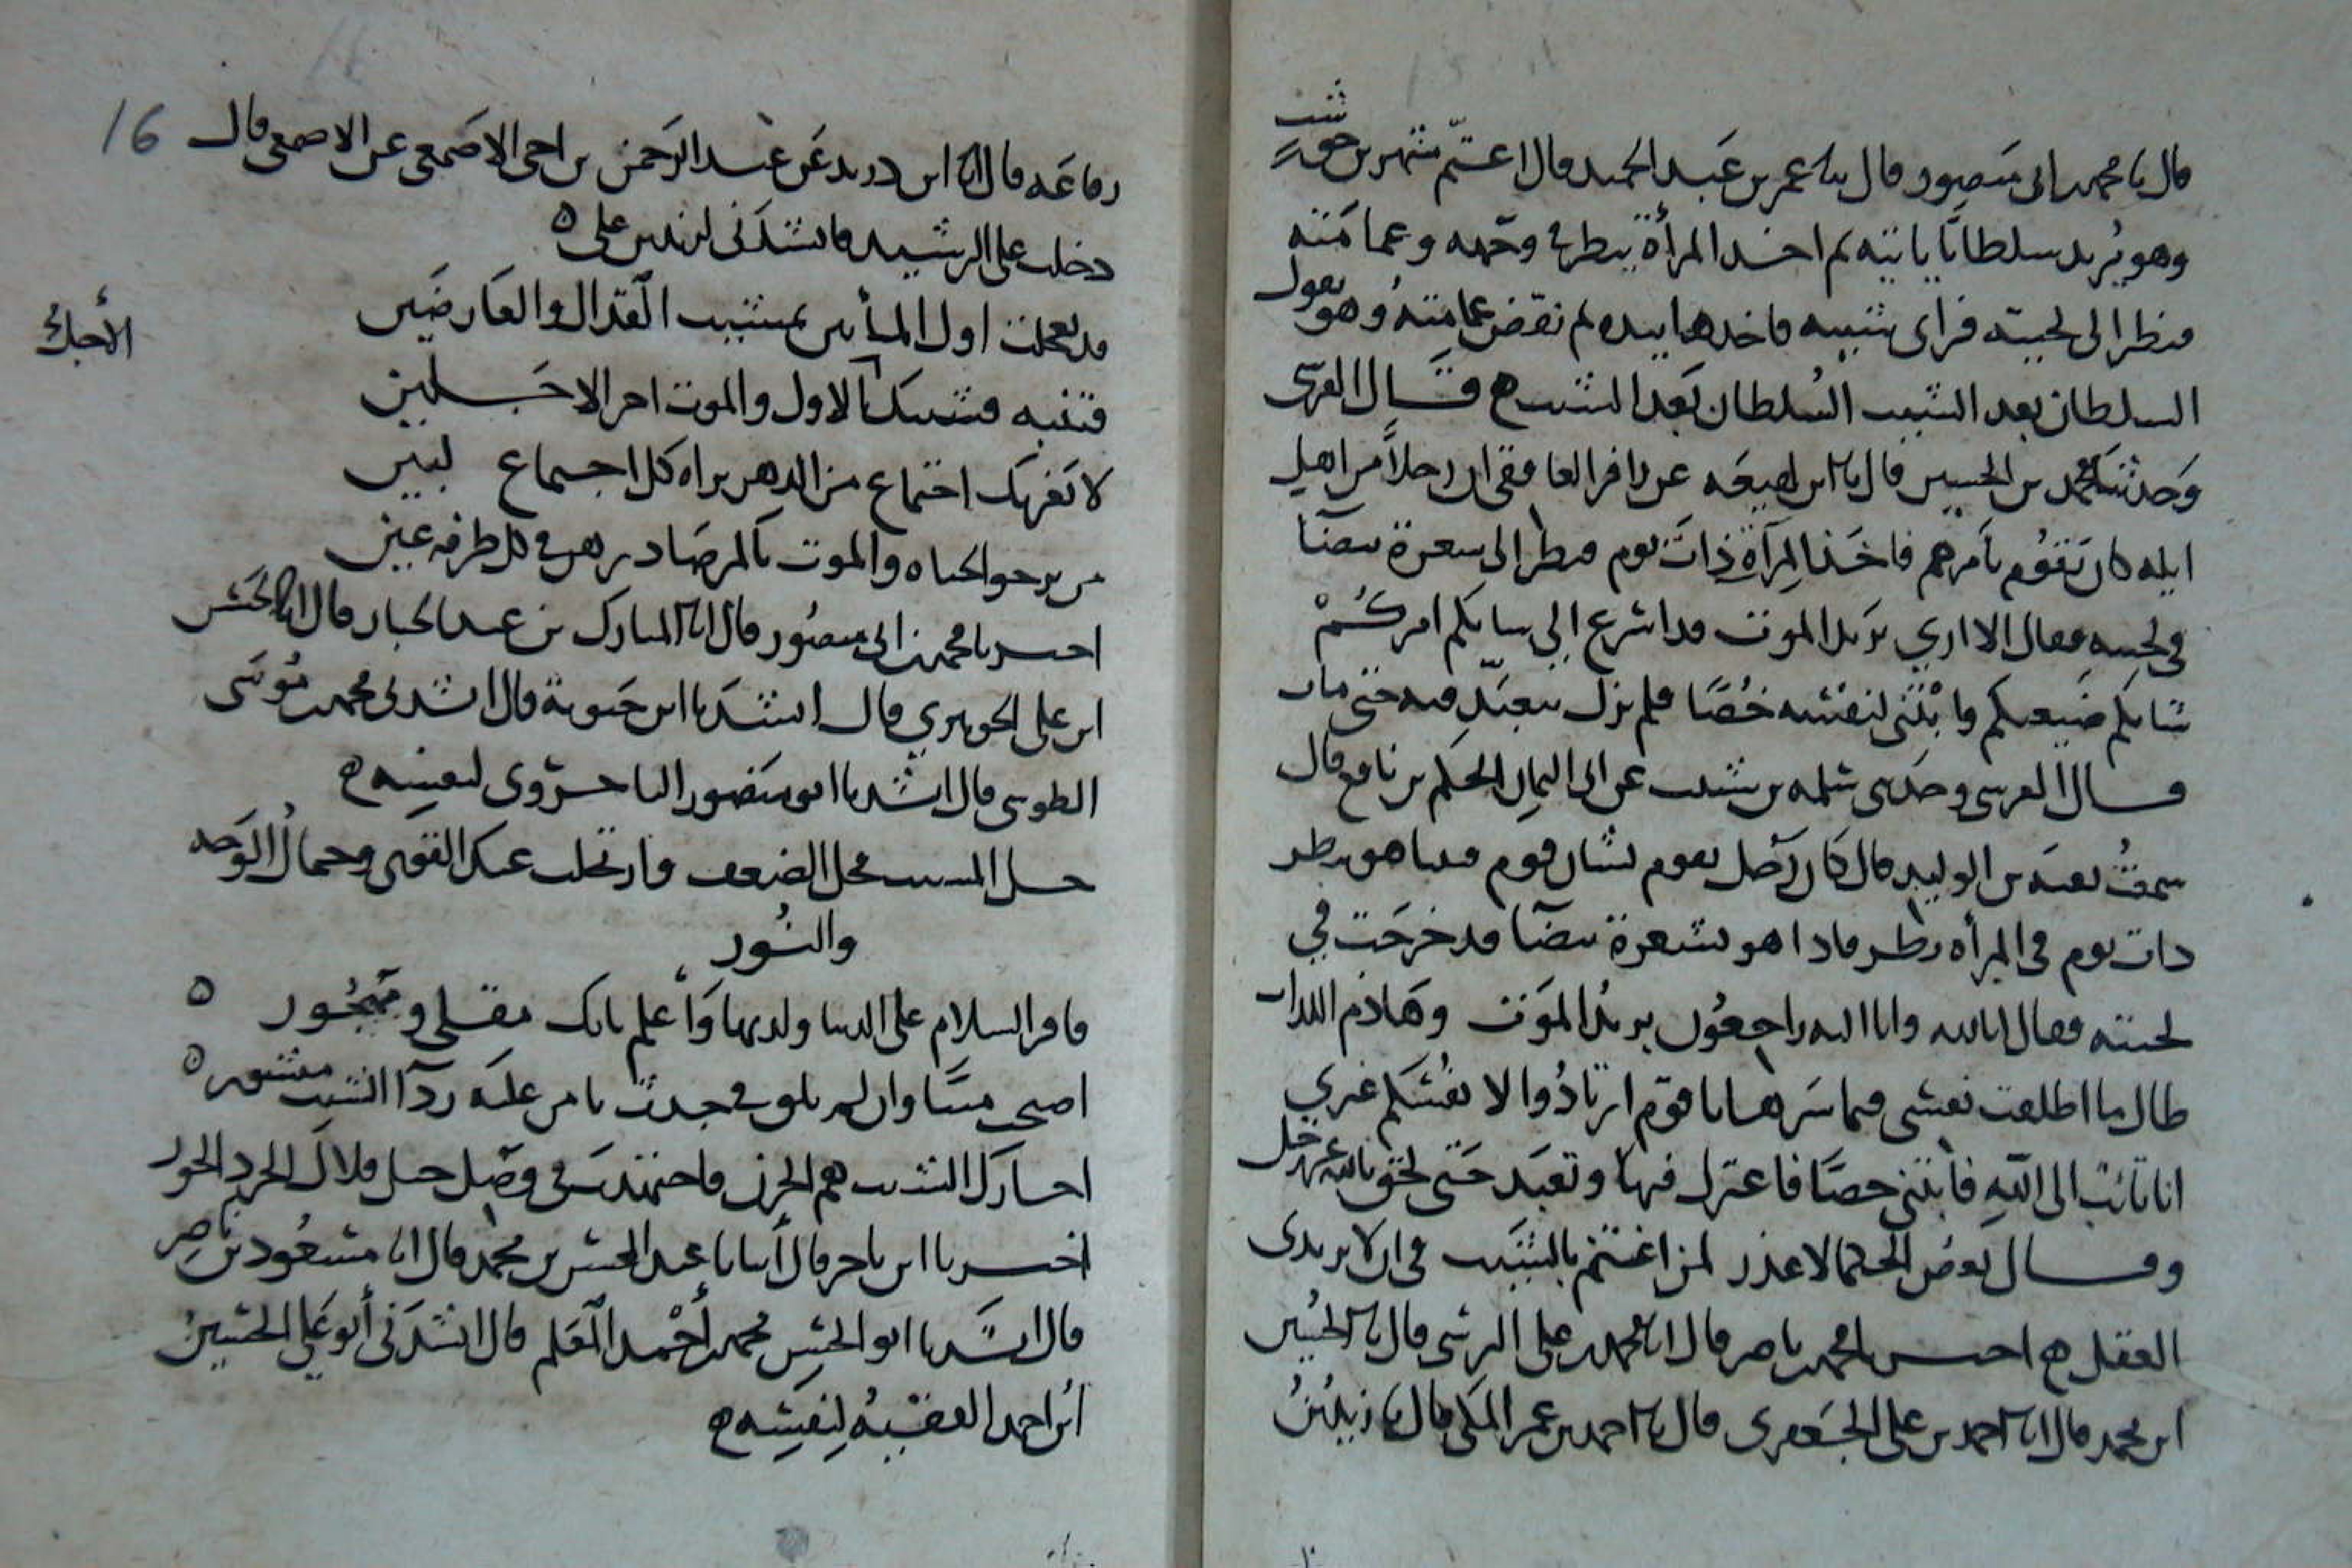 قال نا محمد بن ابي منصور قال نا عمر بن عبد الحميد قال اعتم شهر بن حوشب
وهو يريد سلطانا ياتيه ثم اخذ المرأة ينظر في وجهه وعمامته
فنظر الى لحيته فراى شيبه فاخذها بيده ثم نقض عمامته وهو يقول
السلطان بعد الشيب السلطان بعد الشيب ه قال القرشي
وحدثنا محمد بن الحسين قال نا ابن لهيعه عن زافر العافقي ان رجلا من اهل
ايله كان يقوم بامرهم فاخذ المرآة ذات يوم فنظر الى شعرة بيضآ
في لحيته فقال الا ارى بريد الموت قد اشرع الي شانكم امركم
شانكم ضيعكم وابتنى لنفسه خصا فلم يزل يتعبد فيه حتى مات
قال القرشي وحدثني سلمه بن شبيب عن ابي اليمان الحكم بن نافع قال
سمعت بقيه بن الوليد قال كان رجل يقوم بشان قوم فبينا هو ينظر
ذات يوم في المرأه ينظر فاذا هو بشعرة بيضآ قد خرجت في
لحيته فقال انا لله وانا اليه راجعون بريد الموت وهاذم اللذات
طال ما اطلعت نفسي فيما سرها يا قوم ارتادوا لانفسكم غيري
انا تائب الى الله فابتنى خصا فاعتزل فيها وتعبد حتى لحق بالله عز وجل
وقال بعض الحكما لا عذر لمن اعتم بالشيب في ان لا يرتدى
العقل ه اخبرنا محمد بن ناصر قال انا محمد بن علي النرسي قال نا الحسين
ابن محمد قال انا احمد بن علي الجعفري قال نا احمد بن عمر المكي قال نا زيد بن
رفاعه قال انا ابن دريد عن عبد الرحمن بن اخي الاصمعي عن الاصمعي قال
دخلت على الرشيد فانشدني لزيد بن علي ه
قد تعجلت اول الميأتين بمشيب القذال والعارضين
فتنبه فشيبك الاول والموت اخر الاجلين
الأجل
لا يغرنك اجتماع من الدهر يراه كل اجتماع لبين
من يرجو الحياه والموت بالمرصاد يرهن في كل طرفه عين
اخبرنا محمد بن ابي منصور قال انا المبارك بن عبد الجبار قال انا الحسن
ابن علي الجوهري قال انشدنا ابن حيوية قال انشدني محمد بن موسى
الطوسي قال انشدنا ابو منصور الباخرزى لنفسه ه
حل المشيب محل الضعف وارتحلت عنك القوى وجمال الوجه
والنور
فاقر السلام على الدنيا ولذتها واعلم بانك مقلي ومهجور ه
اصبحت ميتا وان لم تلق في جدث يا من عليه ردآ الشيب منشور ه
اختار كل الشيب هم الحزن فاجتهدت في وصل حبل فلاك الخرد الحور
اخبرنا ابن ناصر قال أنبانا عبد المحسن بن محمد قال انا مسعود بن ناصر
قال انشدنا ابو الحسن محمد بن أحمد المعلم قال انشدنى أبو علي الحسين
ابن احمد الفقيه لنفسه ه
16